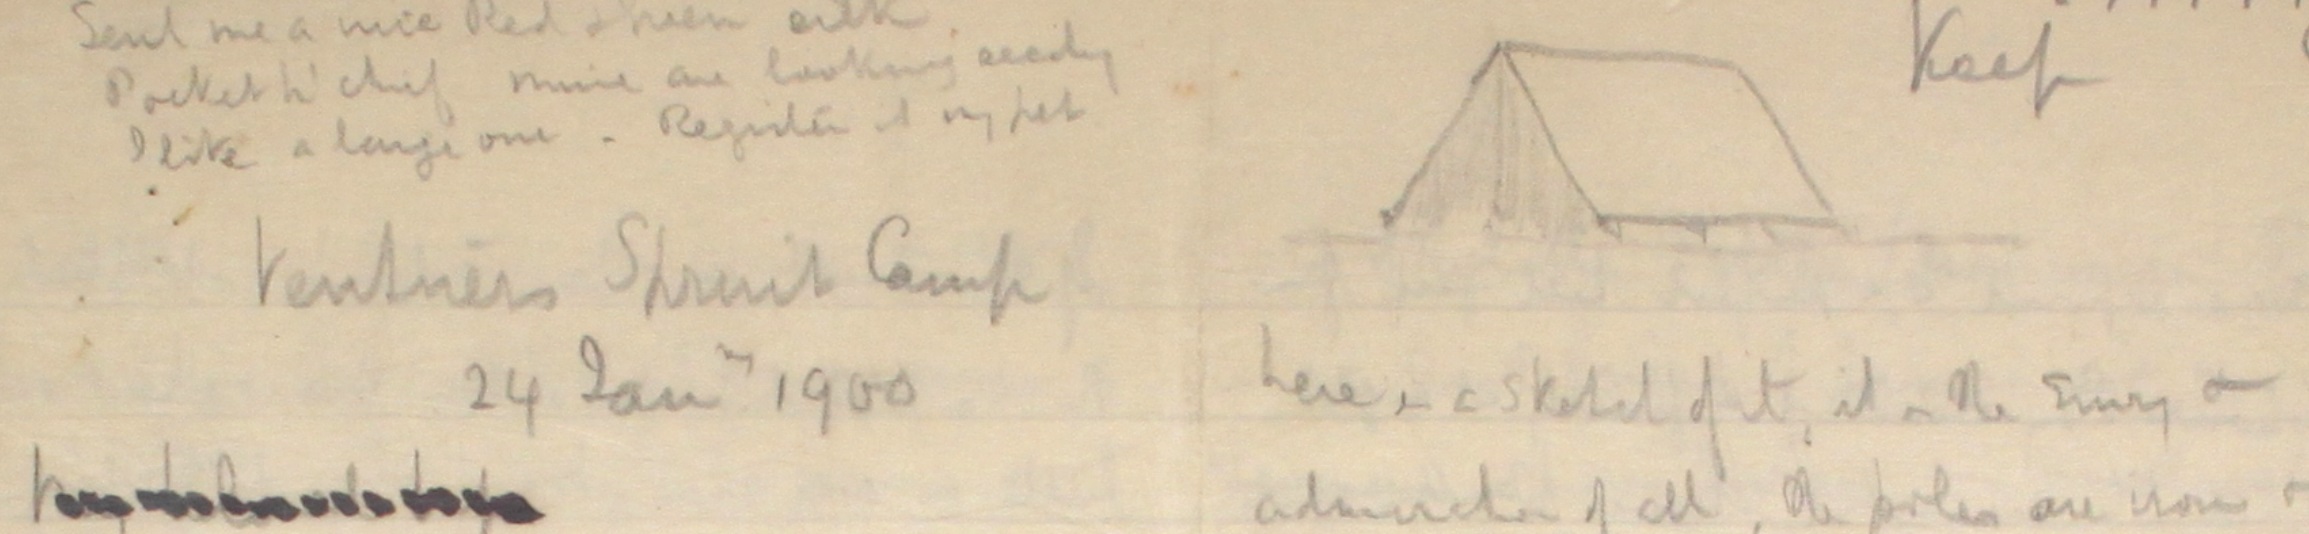 Send me a nice Red & Green silk
Pocket h'chief mine are looking seedy
I like a large one - Register it my pet
Ventners Spruit Camp
24 Jany 1900
Keep
here is a sketch of it, it is the Envy &
admiration of all, the poles are iron &